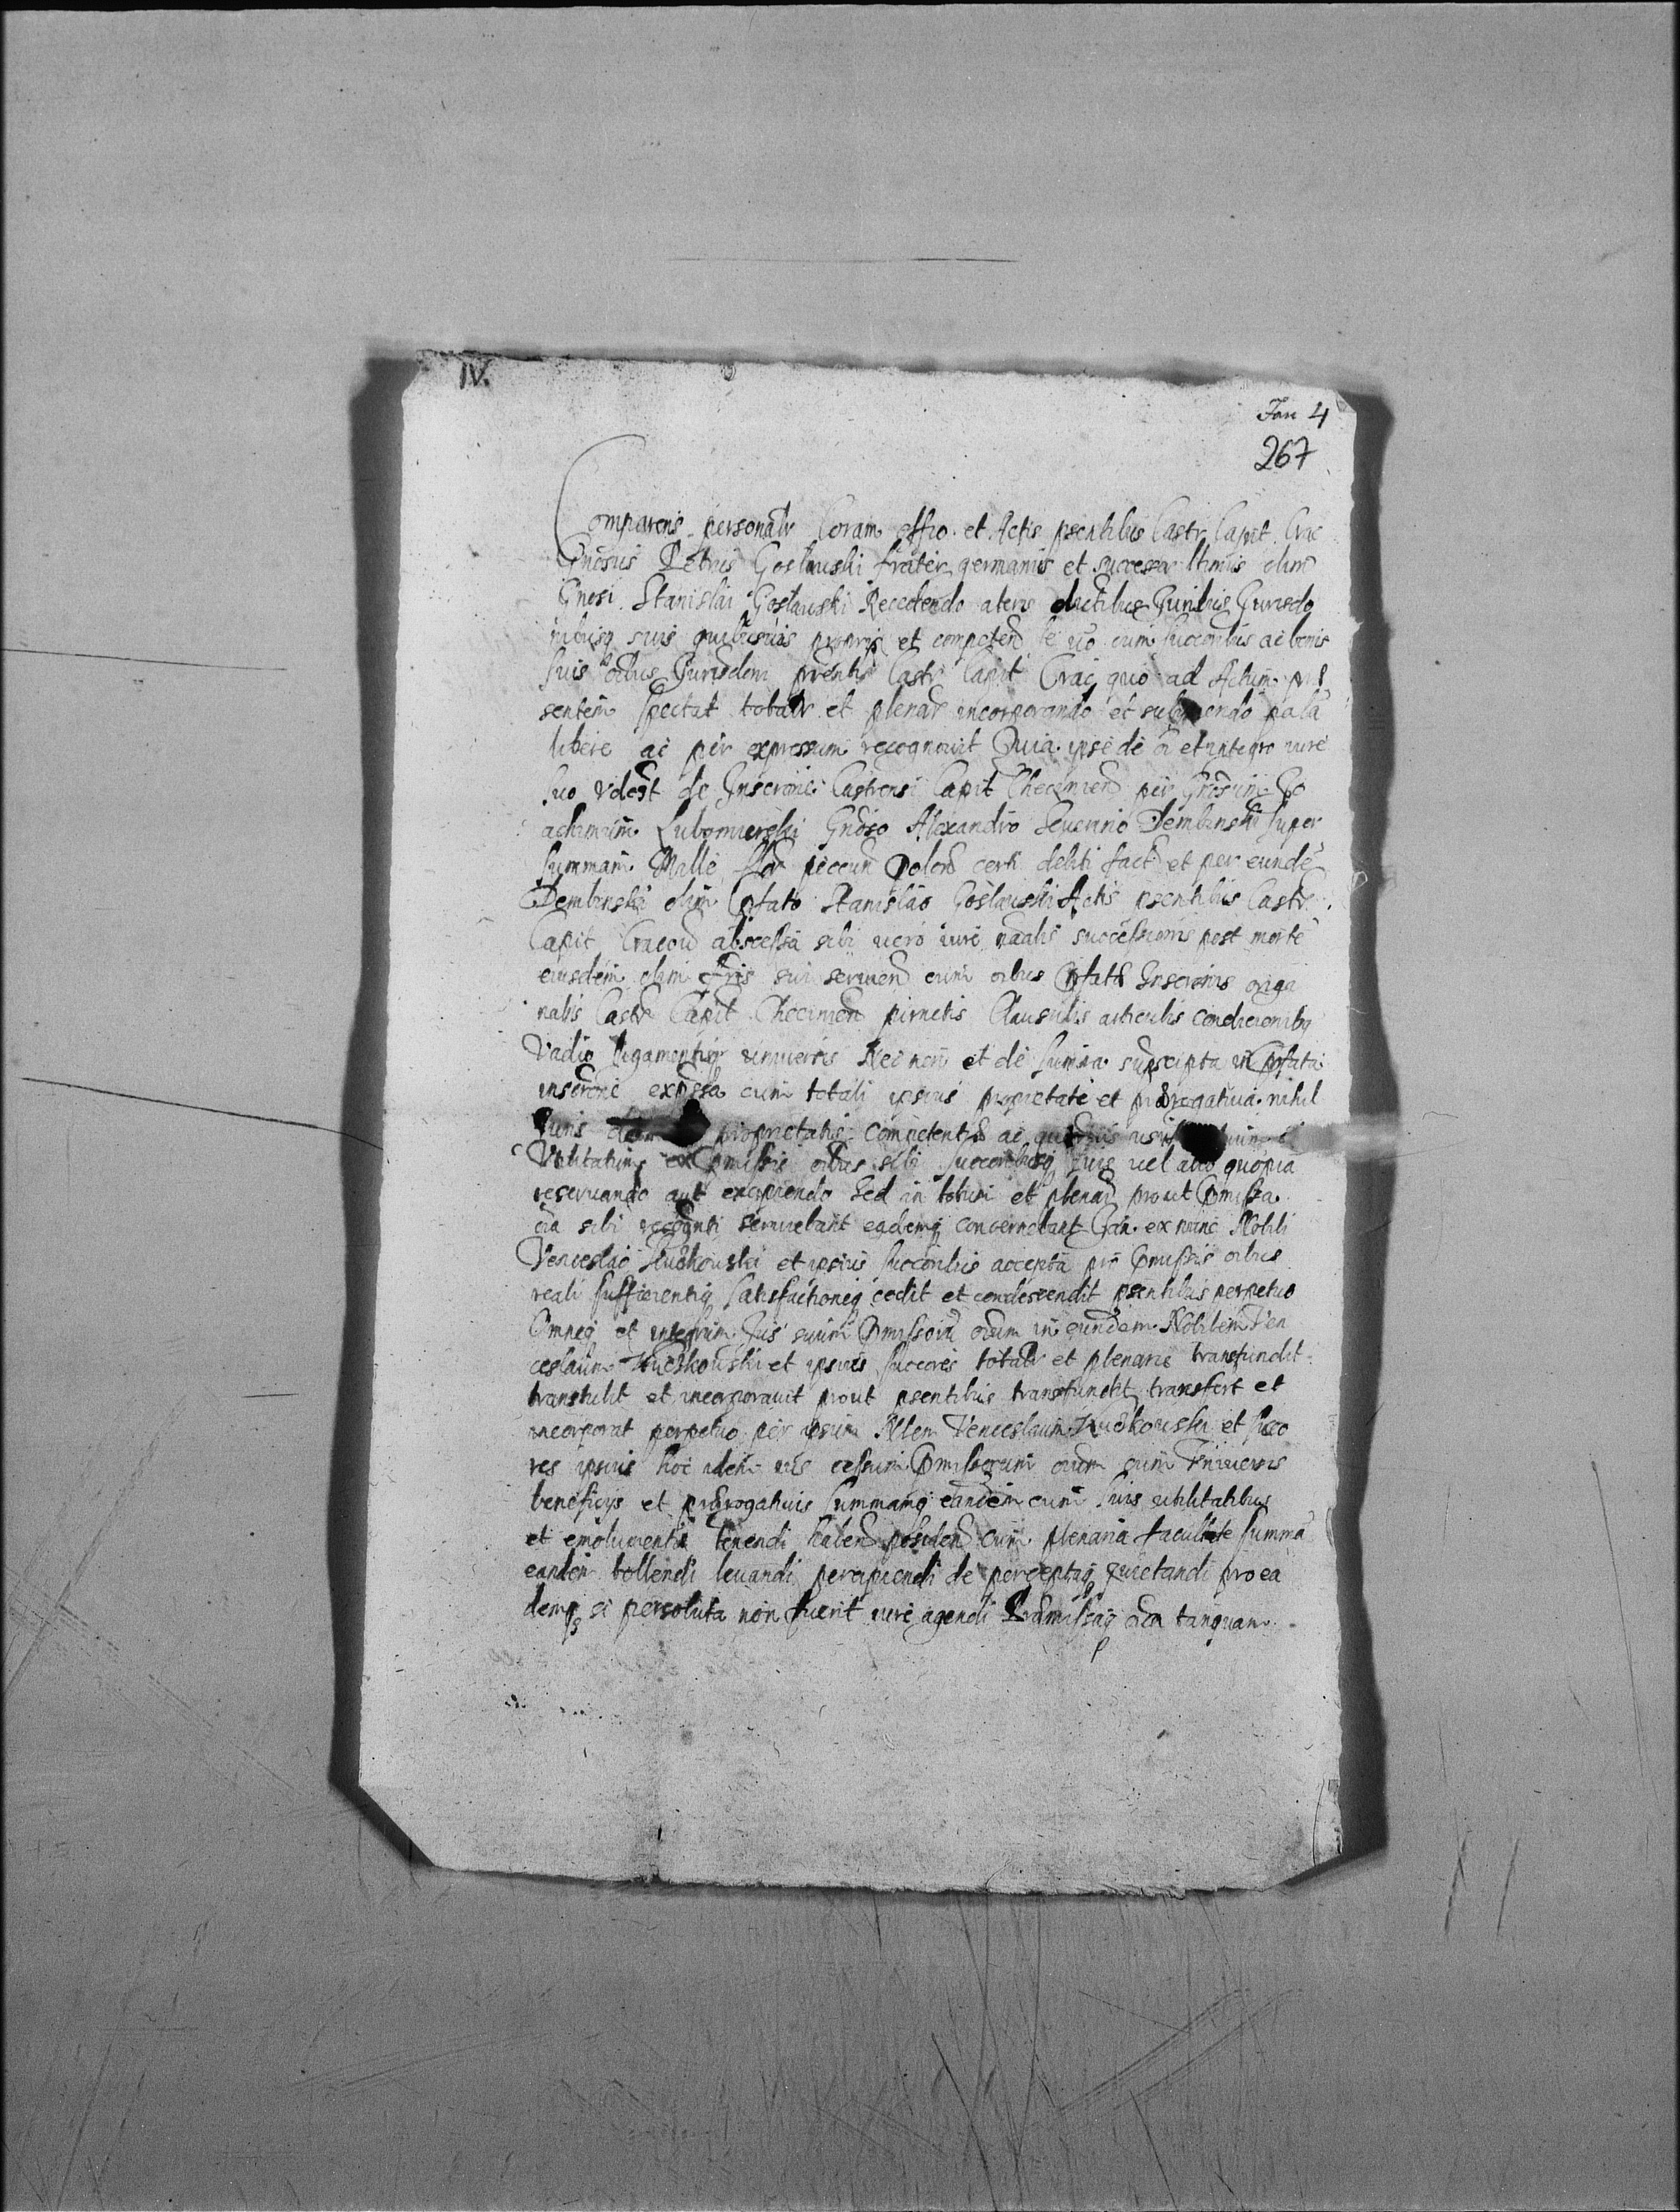 IV.
Fan 4
267
Comparens personalr Coram offio et Actis psentibus Castr Capit Crac
Gnosus Petrus Goslawski frater germanus et successor ltimus olim
Gnosi Stanislai Goslawski Recedendo a teris Juribus Jurisdo
nibusq suis quibusuis proprijs et competen se uo cum succoribus ac bonis
suis oibus Jurisdoni prentis Castr Capit Crac quo ad Actum prē
sentem spectat totalr et plenar incorporando et submendo pala
libere ac per expressum recognouit Quia ipse de oi et integro iure
suo videlt de Inscrione Castrensi Capit Checinien per Gnosum Jo
achimum Lubomierski Gnoso Alexandro Seuerino Dembinski super
summam Mille flor peccun Polon certi debiti fact et per eunde
Dembinski olim pfato Stanislao Goslawski Actis psentibus Castr
Capit Cracou abscessa sibi uero iure nralis successionis post morte
eiusdem olim fris sui seruien cum oibus pfate Inscrionis origi
nalis Castr Capit Checinien punctis Clausulis articulis condicionibq
Vadio ligamentisq uniuersis Nec non et de summa suprscripta in pfata
inscrone expressa cum totali ipsius proprietate et prerogatiua nihil
iuris proprietatis competentiæ ac
Vtilitatum ex pmissis oibus sibi succoribusq suis uel alio quopia
reseruando aut excipiendo Sed in totum et plenar prout pmissa
oia sibi recognti seruiebant eademq concernebant Gran ex nunc Nobili
Venceslao Kuchowski et ipsius succoribus accepta pro pmissis oibus
reali sufficientiq satisfactioneq cedit et condescendit psentibus perpetuo
Omneq et integrum Jus suum pmissoru oium in eundem Nobilem Ven
ceslaum et ipsius succores totalr et plenarie transfundit
transtulit et incorporauit prout psentibus transfundit transfert et
incorporat perpetuo per ipsum Nlem Venceslaum et succo
res ipsius hoc idem ius cessum pmissorum oium cum Vniuersis
beneficijs et prerogatiuis summamq eandem cum suis utilitatibus
et emolumentis tenendi haben possiden cum plenaria facultate summa
eandem tollendi leuandi percipiendi de perceptaq quietandi pro ea
demq si persoluta non fuerit iure agendi Præmissaq oia tanquam